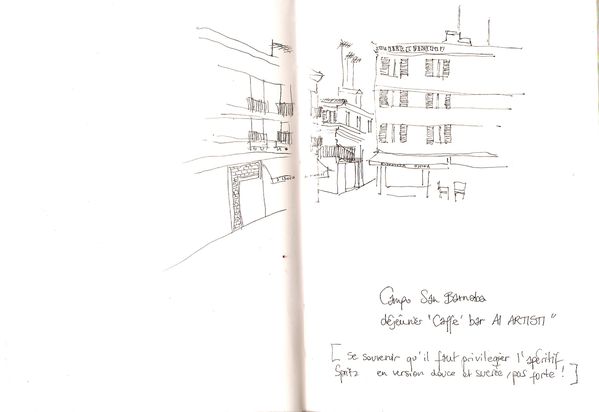 Campo San Barnaba
déjeûner 'Caffé' bar AI ARTISTI"
[ se souvenir qu'il faut privilegier l'apéritif
Spitz en version douce et sucrée, pas forte ! ]